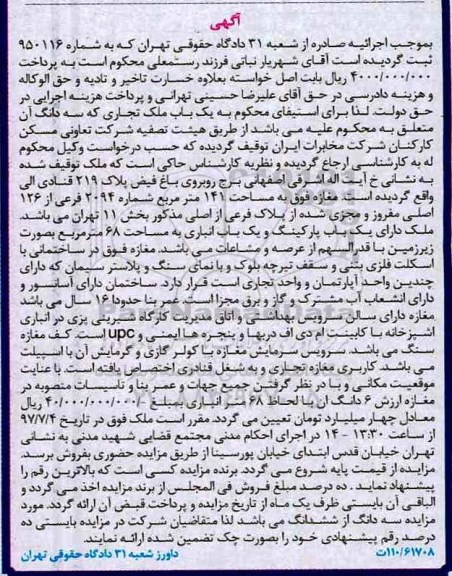 آگهی
بموجب اجرائیه صادره از شعبه ۳۱ دادگاه حقوقی تهران که به شماره ۹۵۰۱۱۶
ثبت گردیده است آقای شهریار نباتی فرزند رستمعلی محکوم است به پرداخت
۴۰۰۰/۰۰۰/۰۰۰ ریال بابت اصل خواسته بعلاوه خسارت تاخیر و تادیه و حق الوکاله
و هزینه دادرسی در حق آقای علیرضا حسینی تهرانی و پرداخت هزینه اجرایی در
حق دولت. لذا برای استیفای محکوم به یک باب ملک تجاری که سه دانگ آن
متعلق به محکوم علیه می باشد از طریق هیئت تصفیه شرکت تعاونی مسکن
کارکنان شرکت مخابرات ایران توقیف گردیده که حسب درخواست وکیل محکوم
له به کارشناسی ارجاع گردیده و نظریه کارشناس حاکی است که ملک توقیف شده
به نشانی خ آیت اله اشرفی اصفهانی برج روبروی باغ فیض پلاک ۲۱۹ قنادی الی
واقع گردیده است مغازه فوق به مساحت ۱۴۱ متر مربع شماره ۲۰۹۴ فرعی از ۱۲۶
اصلی مفروز و مجزی شده از پلاک فرعی از اصلی مذکور بخش ۱۱ تهران می باشد.
ملک دارای یک باب پارکینگ و یک باب انباری به مساحت ۶۸ مترمربع بصورت
زیرزمین با قدرالسهم از عرصه و مشاعات می باشد. مغازه فوق در ساختمانی با
اسکلت فلزی بتنی و سقف تیرچه بلوک و با نمای سنگ و پلاستر سیمان که دارای
چندین واحد آپارتمان و واحد تجاری است قرار دارد. ساختمان دارای آسانسور و
دارای انشعاب آب مشترک و گاز و برق مجزا است. عمر بنا حدودا ۱۶ سال می باشد
مغازه دارای سالن سرویس بهداشتی و اتاق مدیریت کارگاه شیرینی پزی در انباری
آشپزخانه با کابینت ام دی اف دربها و پنجره ها ایمنی و upc است. کف مغازه
سنگ می باشد. سرویس سرمایش مغازه با کولر گازی و گرمایش آن با اسپیلت
می باشد. کاربری مغازه تجاری و به شغل قنادی اختصاص یافته است. با عنایت
موقعیت مکانی و با در نظر گرفتن جمیع جهات و عمر بنا و تاسیسات منصوبه در
مغازه ارزش ۶ دانگ آن با لحاظ ۶۸ متر انباری بمبلغ ۴۰/۰۰۰/۰۰۰/۰۰۰ ریال
معادل چهار میلیارد تومان تعیین می گردد. مقرر است ملک فوق در تاریخ ۹۷/۷/۴
از ساعت ۱۳:۳۰ - ۱۴ در اجرای احکام مدنی مجتمع قضایی شهید مدنی به نشانی
تهران خیابان قدس ابتدای خیابان پورسینا از طریق مزایده حضوری بفروش برسد.
مزایده از قیمت پایه شروع می گردد. برنده مزایده کسی است که بالاترین رقم را
پیشنهاد نماید. ده درصد مبلغ فروش فی المجلس از برنده مزایده اخذ می گردد و
الباقی آن بایستی ظرف یک ماه از تاریخ مزایده و پرداخت قبض آن ارائه گردد. مورد
مزایده سه دانگ از ششدانگ می باشد لذا متقاضیان شرکت در مزایده بایستی ده
درصد رقم پیشنهادی خود را بصورت چک تضمین شده ارائه نمایند.
۱۱۰/۶۱۷۰۸ت داورز شعبه ۳۱ دادگاه حقوقی تهران